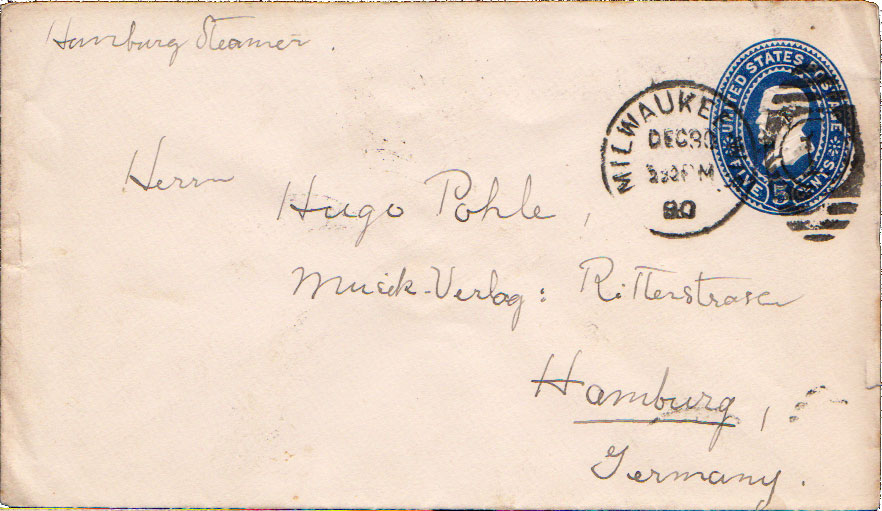 Hamburg Steamer.
UNITED STATES POSTAGE
FIVE 5 CENTS
MILWAUKEE
DEC 30
2 PM
90
Herrn
Hugo Pohle,
Musik-Verlag: Ritterstrasse
Hamburg,
Germany.